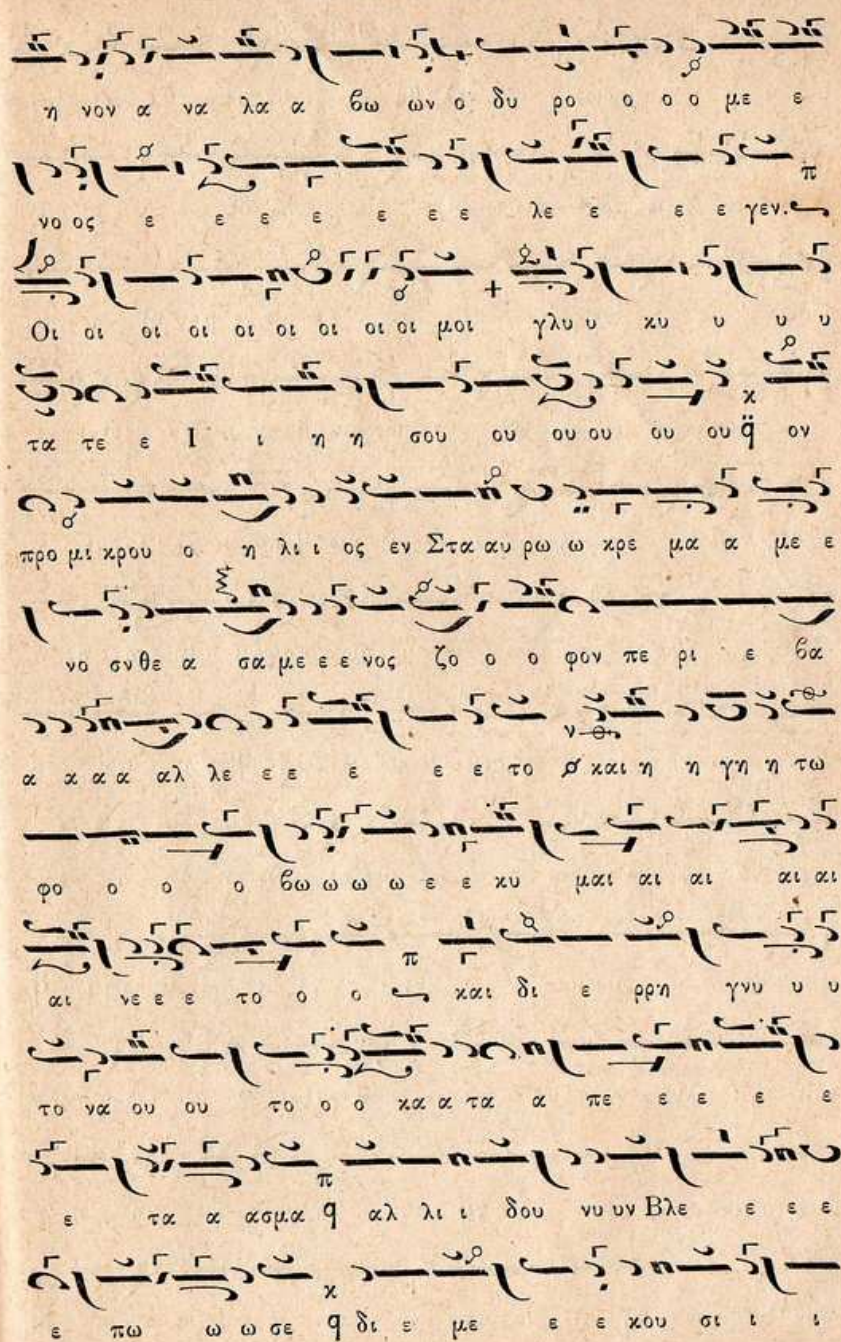 η νον α να λα α βω ων ο δυ ρο ο ο ο με ε
νο ος ε ε ε ε ε ε ε λε ε ε ε γεν.
Οι οι οι οι οι οι οι οι οι μοι γλυ υ κυ υ υ υ
τα τε ε Ι ι η η σου ου ου ου ου ου ον
προ μι κρου ο η λι ι ος εν Στα αυ ρω ω κρε μα α με ε
νο ονθε α σα με ε ε νος ζο ο ο φον πε ρι ε βα
α α α α αλ λε ε ε ε ε ε το και η η γη η τω
φο ο ο ο βω ω ω ω ε ε κυ μαι αι αι αι αι
αι νε ε ε το ο ο και δι ε ρρη γνυ υ υ
το να ου ου το ο ο κα α τα α πε ε ε ε ε
ε τα α ασμα αλ λι ι δου νυ υν Βλε ε ε ε
ε πω ω ω σε δι ε με ε ε κου σι ι ι